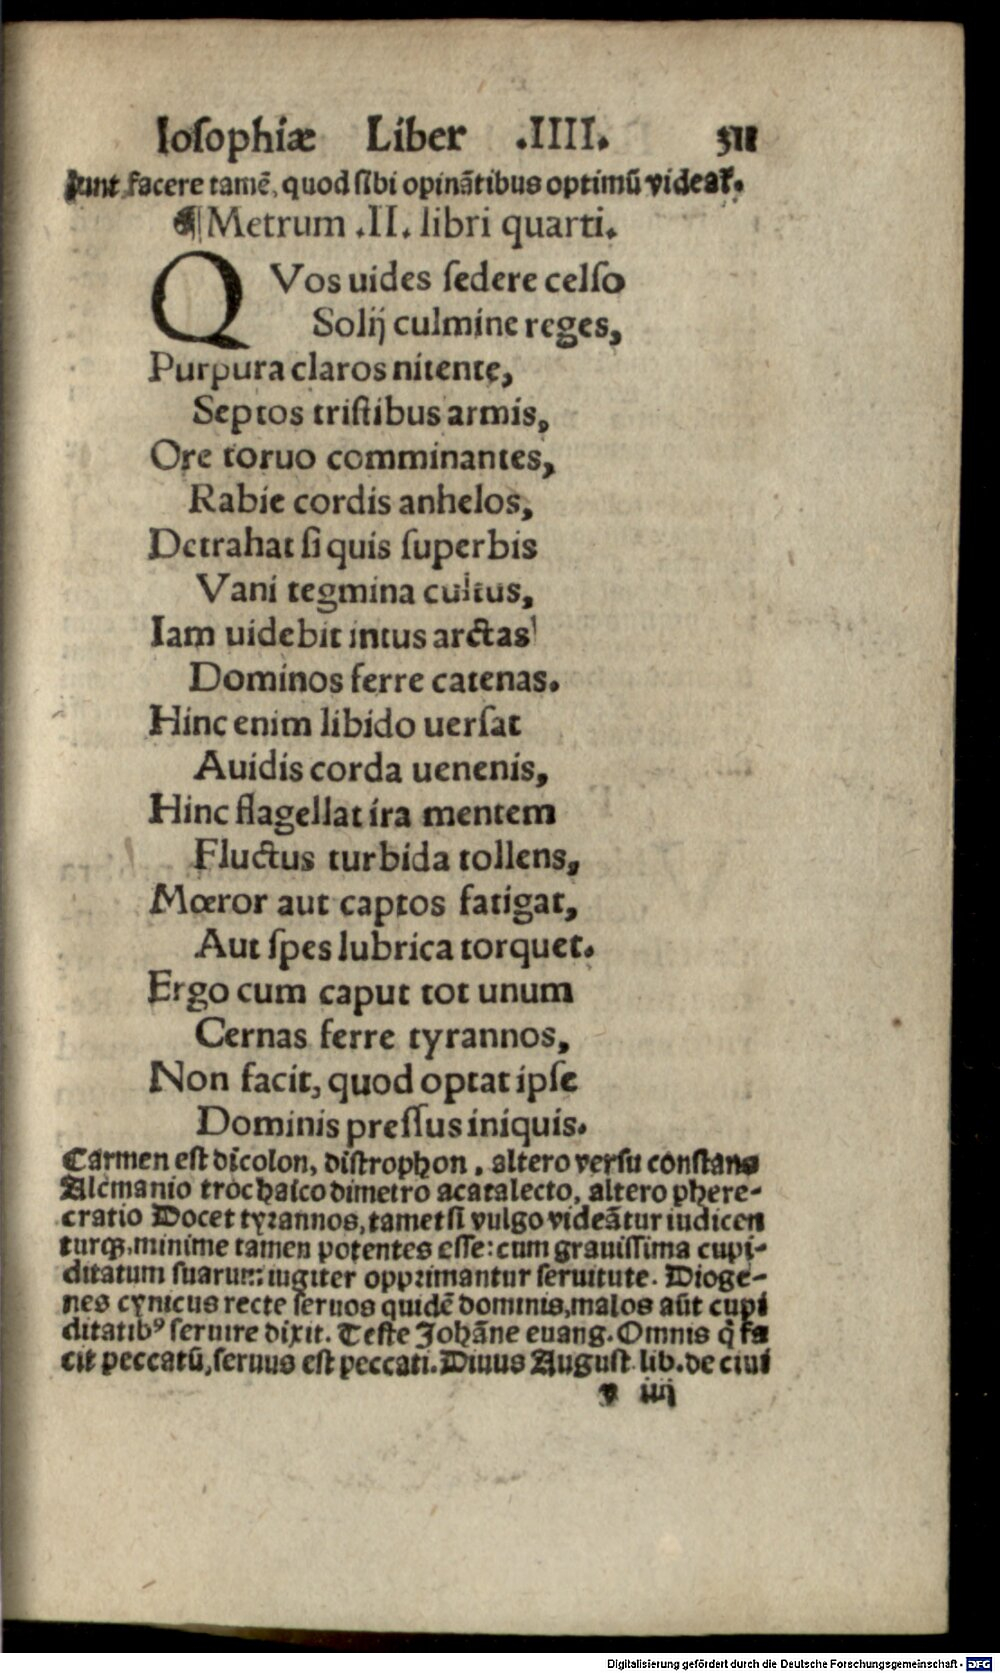 Iosophiæ Liber .IIII. 311
sunt facere tamē, quod sibi opinātibus optimū videaꝛ̃.
¶Metrum .II. libri quarti.
QVos uides sedere celso
Solij culmine reges,
Purpura claros nitente,
Septos tristibus armis,
Ore toruo comminantes,
Rabie cordis anhelos,
Detrahat si quis superbis
Vani tegmina cultus,
Iam uidebit intus arctas
Dominos ferre catenas.
Hinc enim libido uersat
Auidis corda uenenis,
Hinc flagellat ira mentem
Fluctus turbida tollens,
Mœror aut captos fatigat,
Aut spes lubrica torquet.
Ergo cum caput tot unum
Cernas ferre tyrannos,
Non facit, quod optat ipse
Dominis pressus iniquis.
Carmen est dicolon, distrophon, altero versu constans
Alcmanio trochaico dimetro acatalecto, altero phere-
cratio Docet tyrannos, tametsi vulgo videātur iudicen
turqꝫ, minime tamen potentes esse: cum grauissima cupi-
ditatum suarum iugiter opprimantur seruitute. Dioge-
nes cynicus recte seruos quidē dominis, malos aūt cupi
ditatibꝰ seruire dixit. Teste Johāne euang. Omnis q̄ fa
cit peccatū, seruus est peccati. Diuus August. lib. de ciui
v iiij
Digitalisierung gefördert durch die Deutsche Forschungsgemeinschaft - DFG